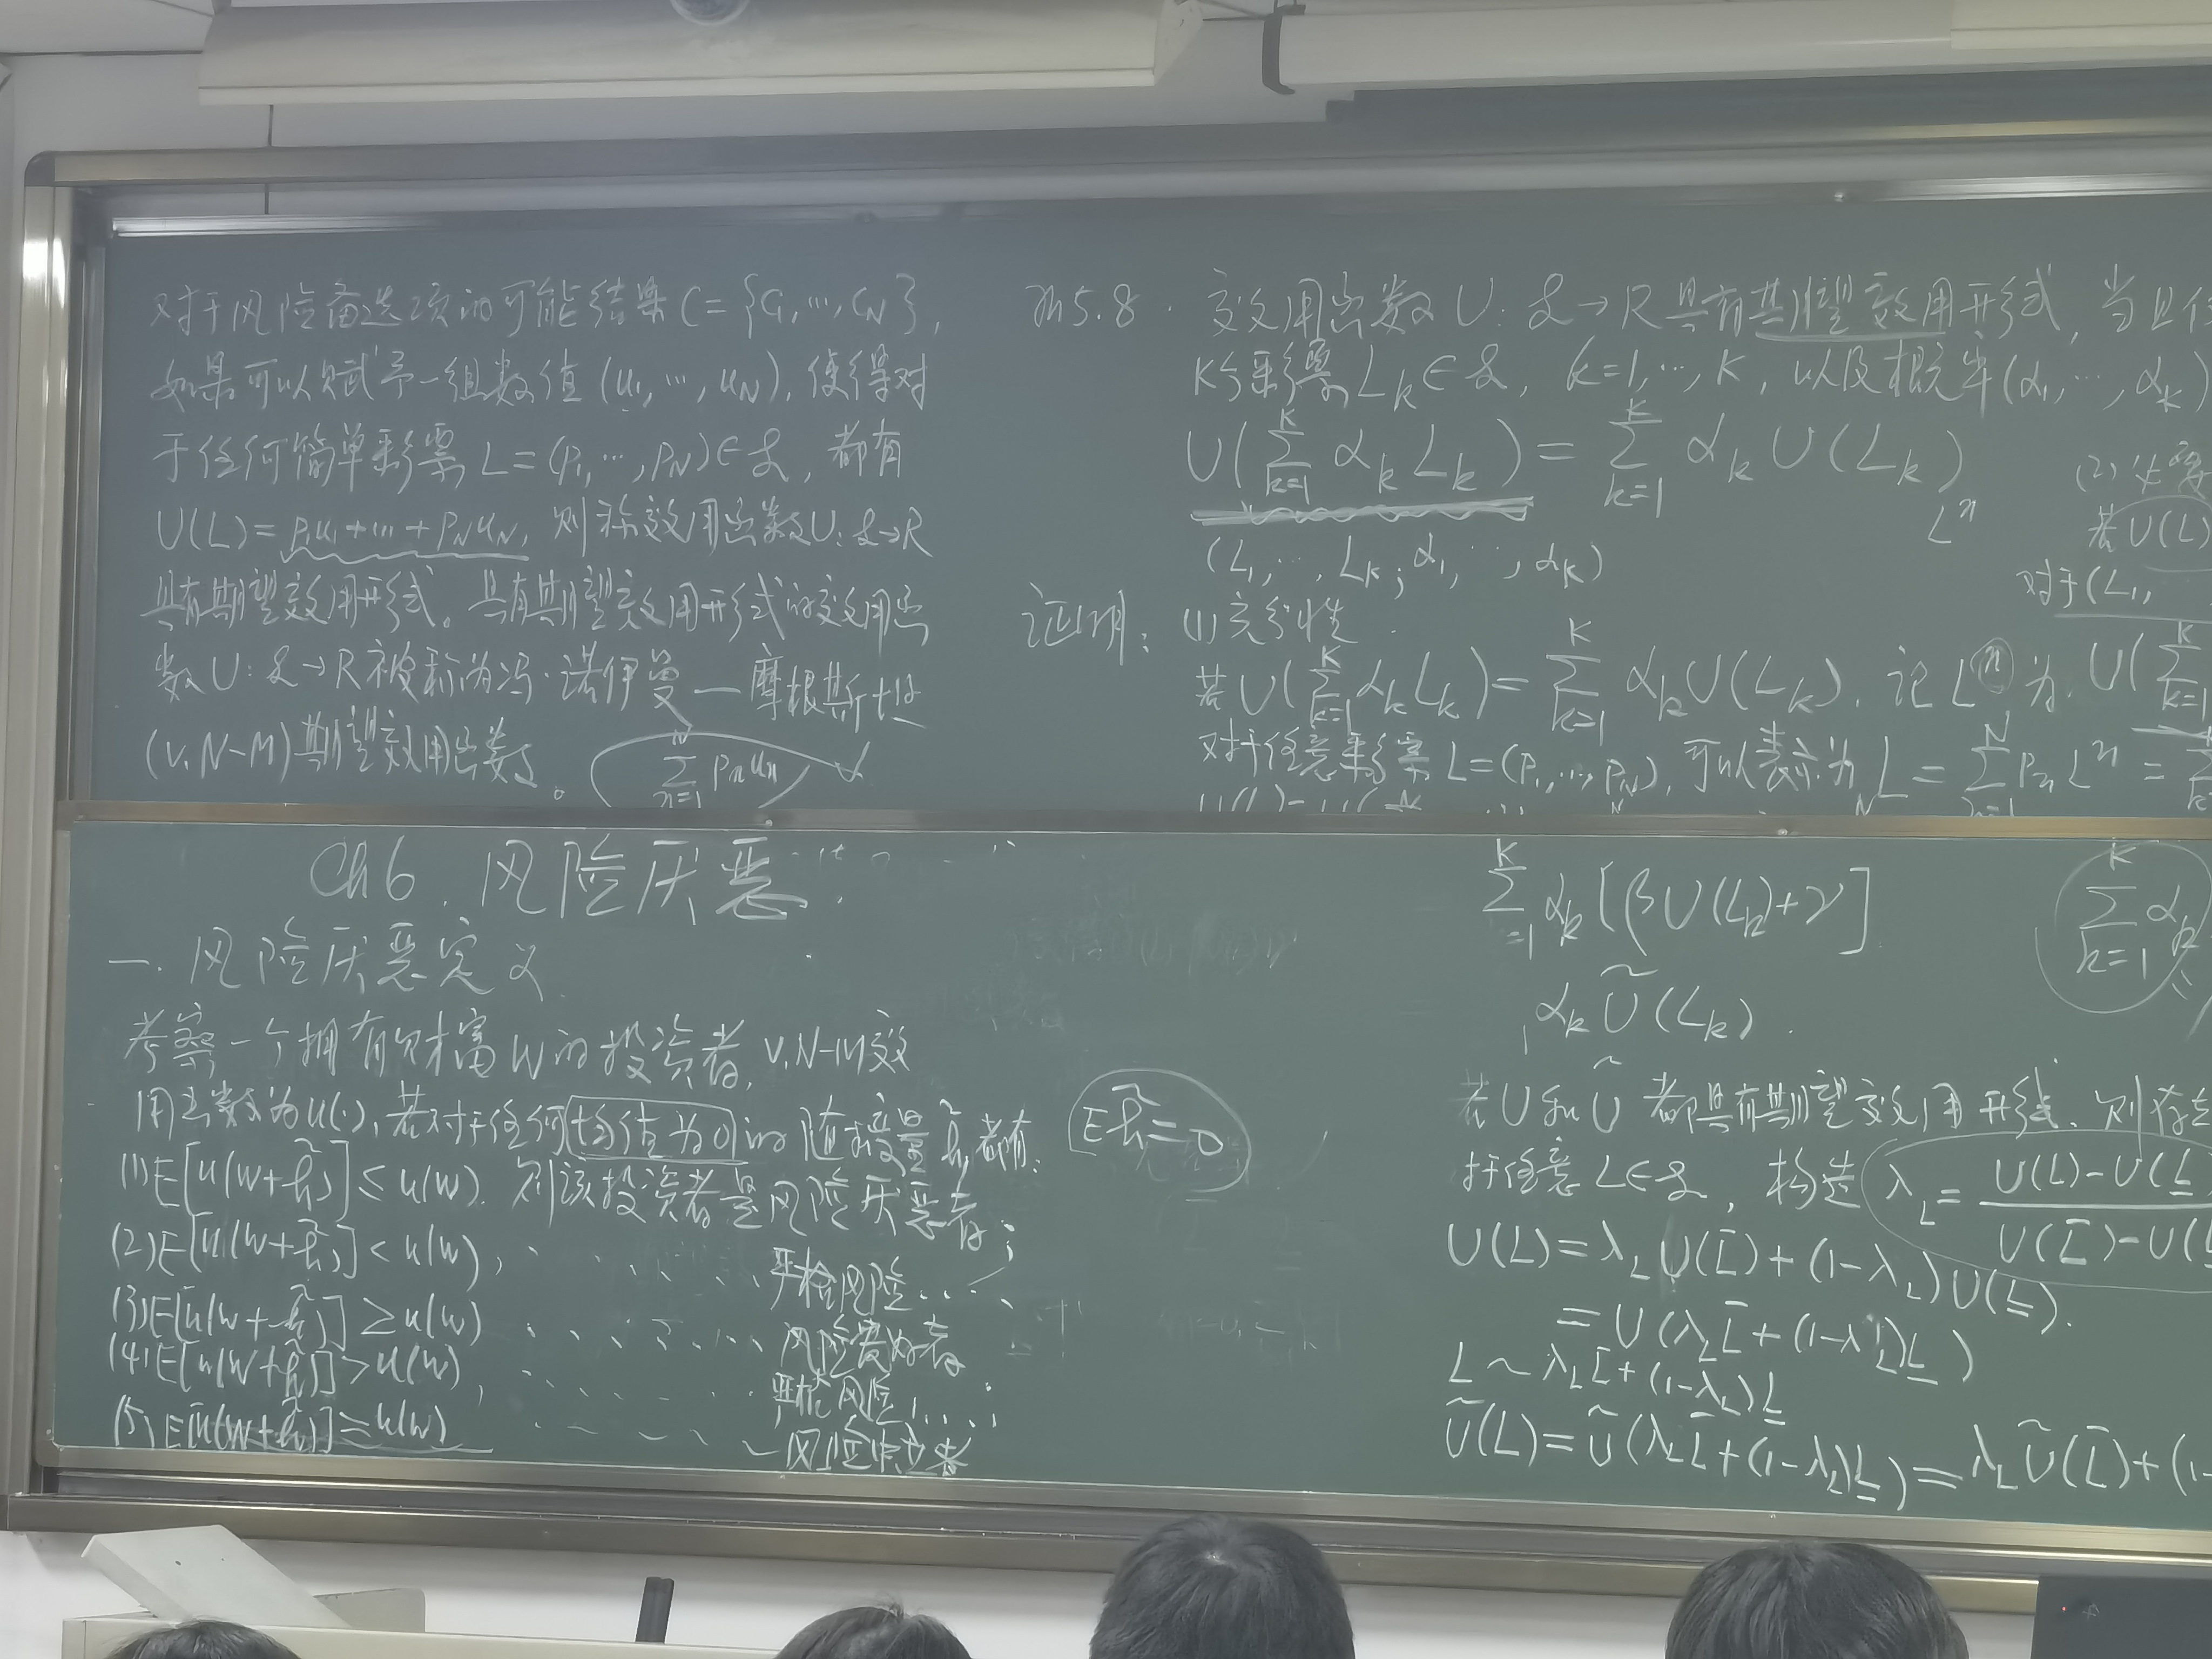 对于风险备选项的可能结果 C={c₁,…,c_N},
如果可以赋予一组数值 (u₁,…,u_N), 使得对
于任何简单彩票 L=(p₁,…,p_N)∈ℒ, 都有
U(L)=p₁u₁+…+p_Nu_N, 则称效用函数U:ℒ→R
具有期望效用形式。具有期望效用形式的效用函
数 U:ℒ→R 被称为冯·诺伊曼—摩根斯坦
(V.N-M)期望效用函数。
∑_{n=1}^{N} p_n u_n
5.8. 效用函数 U:ℒ→R 具有期望效用形式, 当且
K个彩票 L_k∈ℒ, k=1,…,K, 以及概率(α₁,…,α_k)
U(∑_{k=1}^{K} α_k L_k)=∑_{k=1}^{K} α_k U(L_k)
Lⁿ
(L₁,…,L_K; α₁,…,α_K)
证明: (1) 充分性.
若 U(∑_{k=1}^{K} α_k L_k)=∑_{k=1}^{K} α_k U(L_k). 记 Lⁿ 为
对于任意彩票 L=(p₁,…,p_N), 可以表示为 L=∑_{n=1}^{N} p_n Lⁿ =
(2) 必要
若 U(L)
对于(L₁,
U(∑_{k=1}^{K}
Ch6. 风险厌恶.
一. 风险厌恶定义
考察一个拥有初财富 W 的投资者, V.N-M效
用函数为 u(·), 若对于任何均值为0的随机变量 h̃, 都有:
(1) E[u(w+h̃)]≤u(w). 则该投资者是风险厌恶者;
(2) E[u(w+h̃)]<u(w), ...... 严格风险....
(3) E[u(w+h̃)]≥u(w) ...... 风险爱好者
(4) E[u(w+h̃)]>u(w), ...... 严格风险.....
(5) E[u(w+h̃)]=u(w) ...... 风险中立者
Eh̃=0
∑_{=1}^{K} α_k[βU(L_k)+γ]
α_k Ũ(L_k).
若 U 和 Ũ 都具有期望效用形式. 则存在
对于任意 L∈ℒ, 构造 λ_L=(U(L)-U(L̲
U(L̄)-U(L̲
U(L)=λ_L U(L̄)+(1-λ_L)U(L̲).
=U(λ_L L̄+(1-λ_L)L̲)
L~λ_L L̄+(1-λ_L)L̲
Ũ(L)=Ũ(λ_L L̄+(1-λ_L)L̲)=λ_L Ũ(L̄)+(1-
∑_{k=1}^{K} α_k